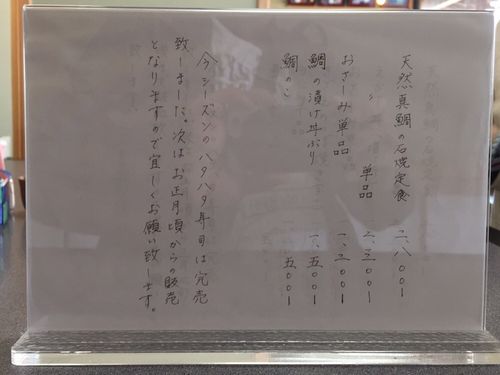 天然真鯛の石焼定食 二、八〇〇ー
〃 単品 二、三〇〇ー
おさしみ単品 一、二〇〇ー
鯛の漬け丼ぶり 一、五〇〇ー
鯛のこ 五〇〇ー
今シーズンのハタハタ寿司は完売
致しました。次はお正月頃からの販売
となりますので宜しくお願い致します。